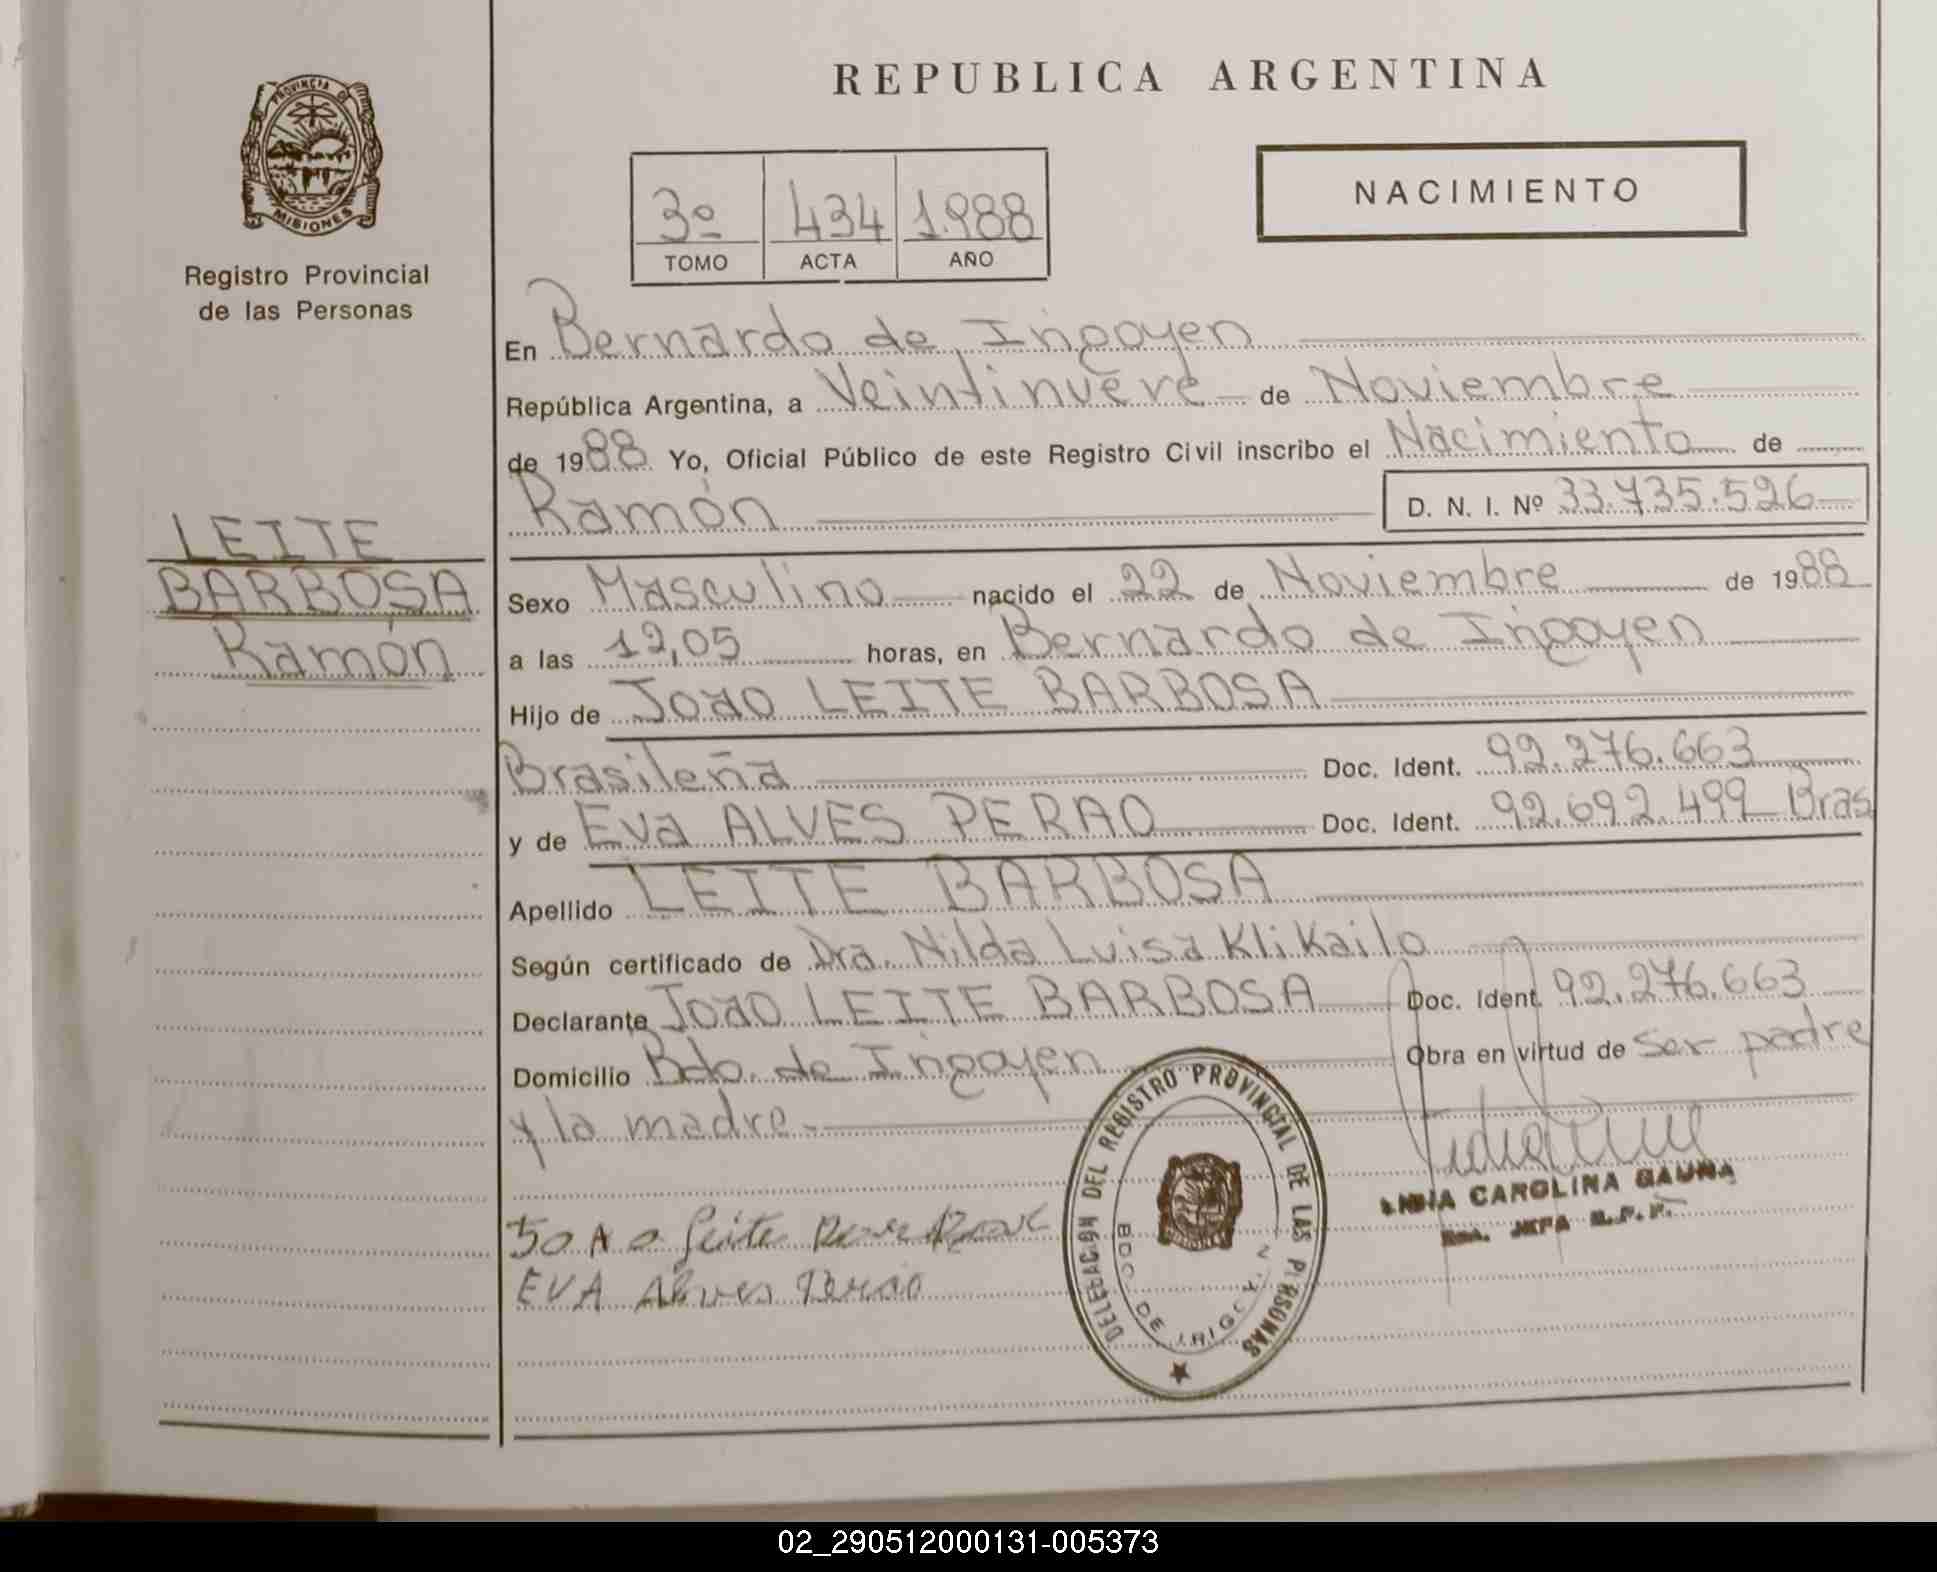 REPUBLICA ARGENTINA
PROVINCIA DE
MISIONES
Registro Provincial
de las Personas
NACIMIENTO
3º 434 1.988
TOMO ACTA AÑO
En Bernardo de Irigoyen
República Argentina, a Veintinueve de Noviembre
de 1988 Yo, Oficial Público de este Registro Civil inscribo el Nacimiento de
Ramón D. N. I. Nº 33.735.526
LEITE
BARBOSA
Ramón
Sexo Masculino nacido el 22 de Noviembre de 1988
a las 12,05 horas, en Bernardo de Irigoyen
Hijo de Joao LEITE BARBOSA
Brasileña Doc. Ident. 92.276.663
y de Eva ALVES PERAO Doc. Ident. 92.692.499 Bras
Apellido LEITE BARBOSA
Según certificado de Dra. Nilda Luisa Klikailo
Declarante Joao LEITE BARBOSA Doc. Ident. 92.276.663
Domicilio Bdo. de Irigoyen Obra en virtud de ser padre
y la madre.
DELEGACION DEL REGISTRO PROVINCIAL DE LAS PERSONAS
BDO. DE IRIGOYEN
CAROLINA GAUNA
JEFA R.P.P.
JOAO Leite
EVA Alves Perao
02_290512000131-005373